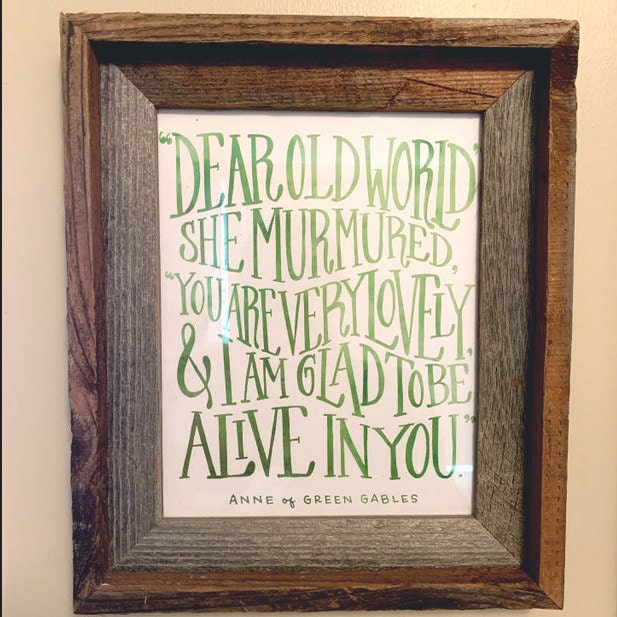 “DEAR OLD WORLD”,
SHE MURMURED,
“YOU ARE VERY LOVELY,
& I AM GLAD TO BE
ALIVE IN YOU.”
ANNE of GREEN GABLES